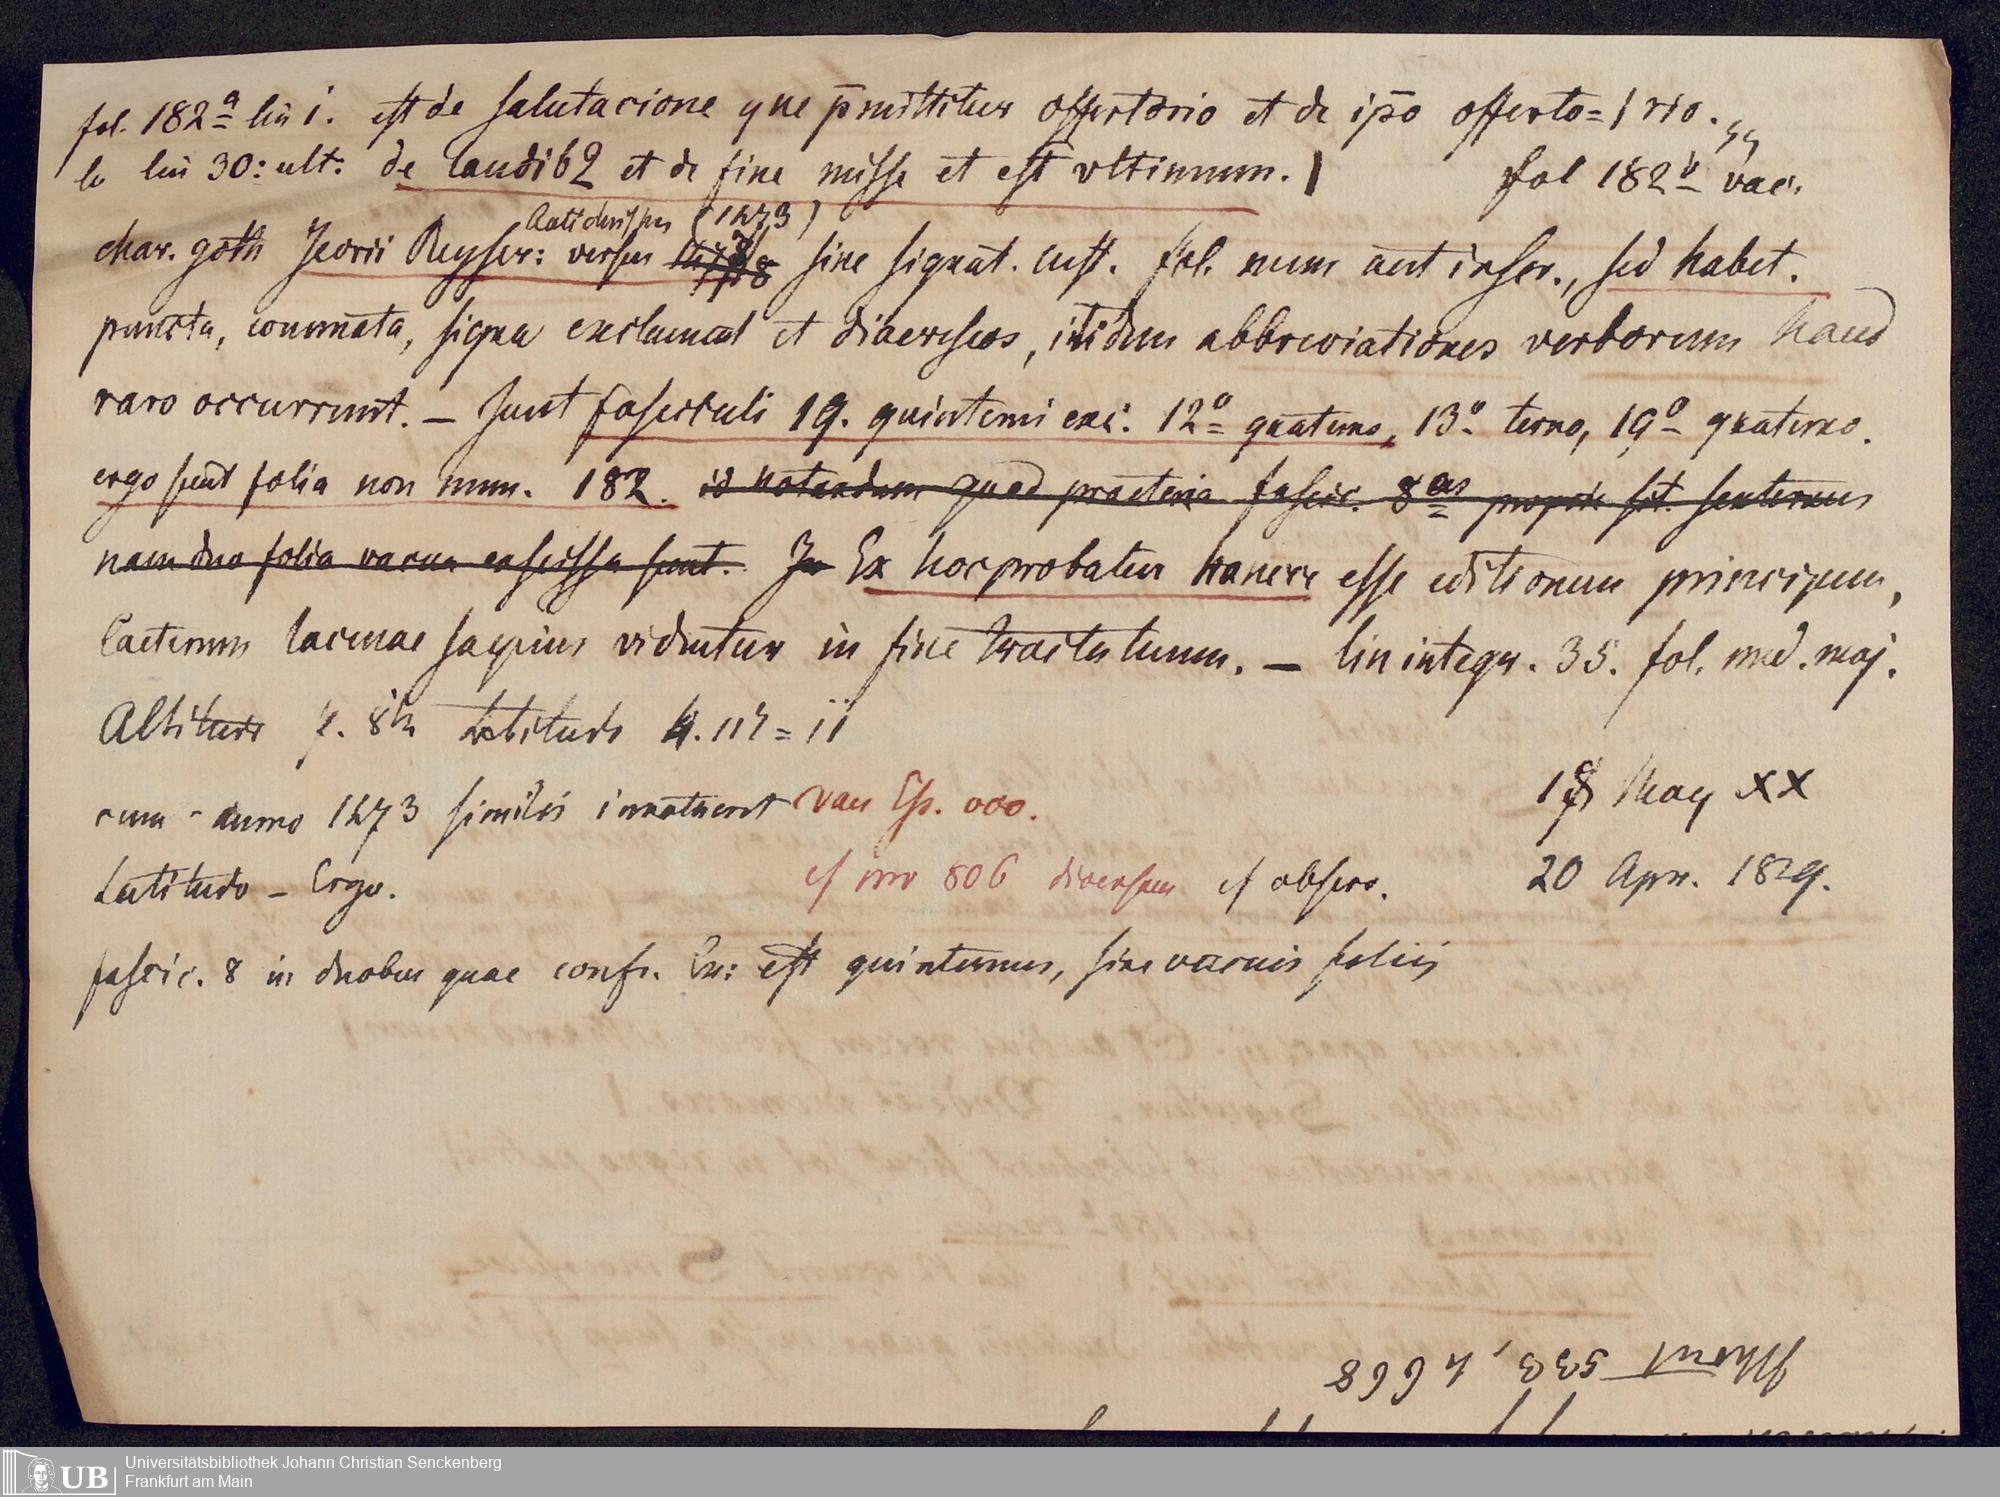 fol. 182a lin i. est de salutacione que p̄mittitur offertorio et de ip̄o offerto=| rio.
lin 30: ult: de laudib9 et de fine misse et est vltimum. | fol 182b vac.
Antichristus (1473)
char. goth Jeorii Reyser: versus sine signat. cust. fol. num aut inser., sed habet.
puncta, commata, signa exclamat et diaereseos, itidem abbreviationes verborum haud
raro occurrunt. – sunt fasciculi 19. quinterni exc. 12o quaterno, 13o terno, 19o quaterno.
ergo sunt folia non num. 182. id notandum quod praeterea fascic. 8us proprie sit senternus
nam duo folia vacua exscissa sunt. In Ex hoc probatur hancce esse editionem principem,
Caeterum lacunae saepius videntur in fine tractatuum. – lin integr. 35. fol. med. maj.
Altitudo 7. latitudo 4. = ii
cum - anno 1473 similis van Esp. 000. 18 May XX
Latitudo – Ergo. cf nro 806 diversum cf observ. 20 Apr. 1829.
fascic. 8 in duobus quae conf. Ex: est quinternus, sine vacuis foliis
533, 4668